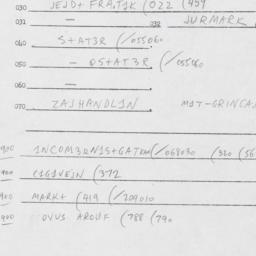 030 JEJD+ FRA,T1K (022 (459
031 — 032 JURMARK
040 S+AT3R (/055060
050 — OS+AT3R (/055060
060 —
070 ZAJHANDL1N M1T-GRINCA
900 1NCOM3RN1S+GATRAM(/068030 (320 (56
900 C1G1VEJN (372
900 MARK+ (419 (/209010
900 OVUS AROUF (788 (790